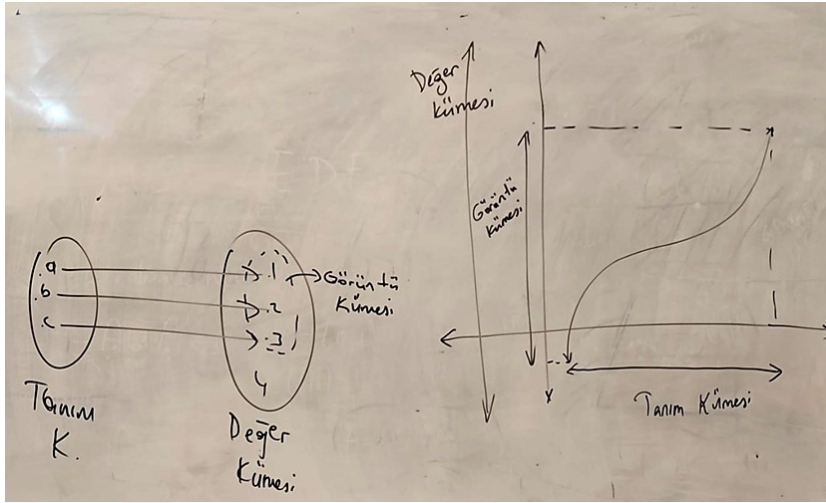 .a
.b
.c
.1
.2
.3
4
Görüntü
Kümesi
Tanım
K.
Değer
Kümesi
Değer
Kümesi
Görüntü
Kümesi
Tanım Kümesi